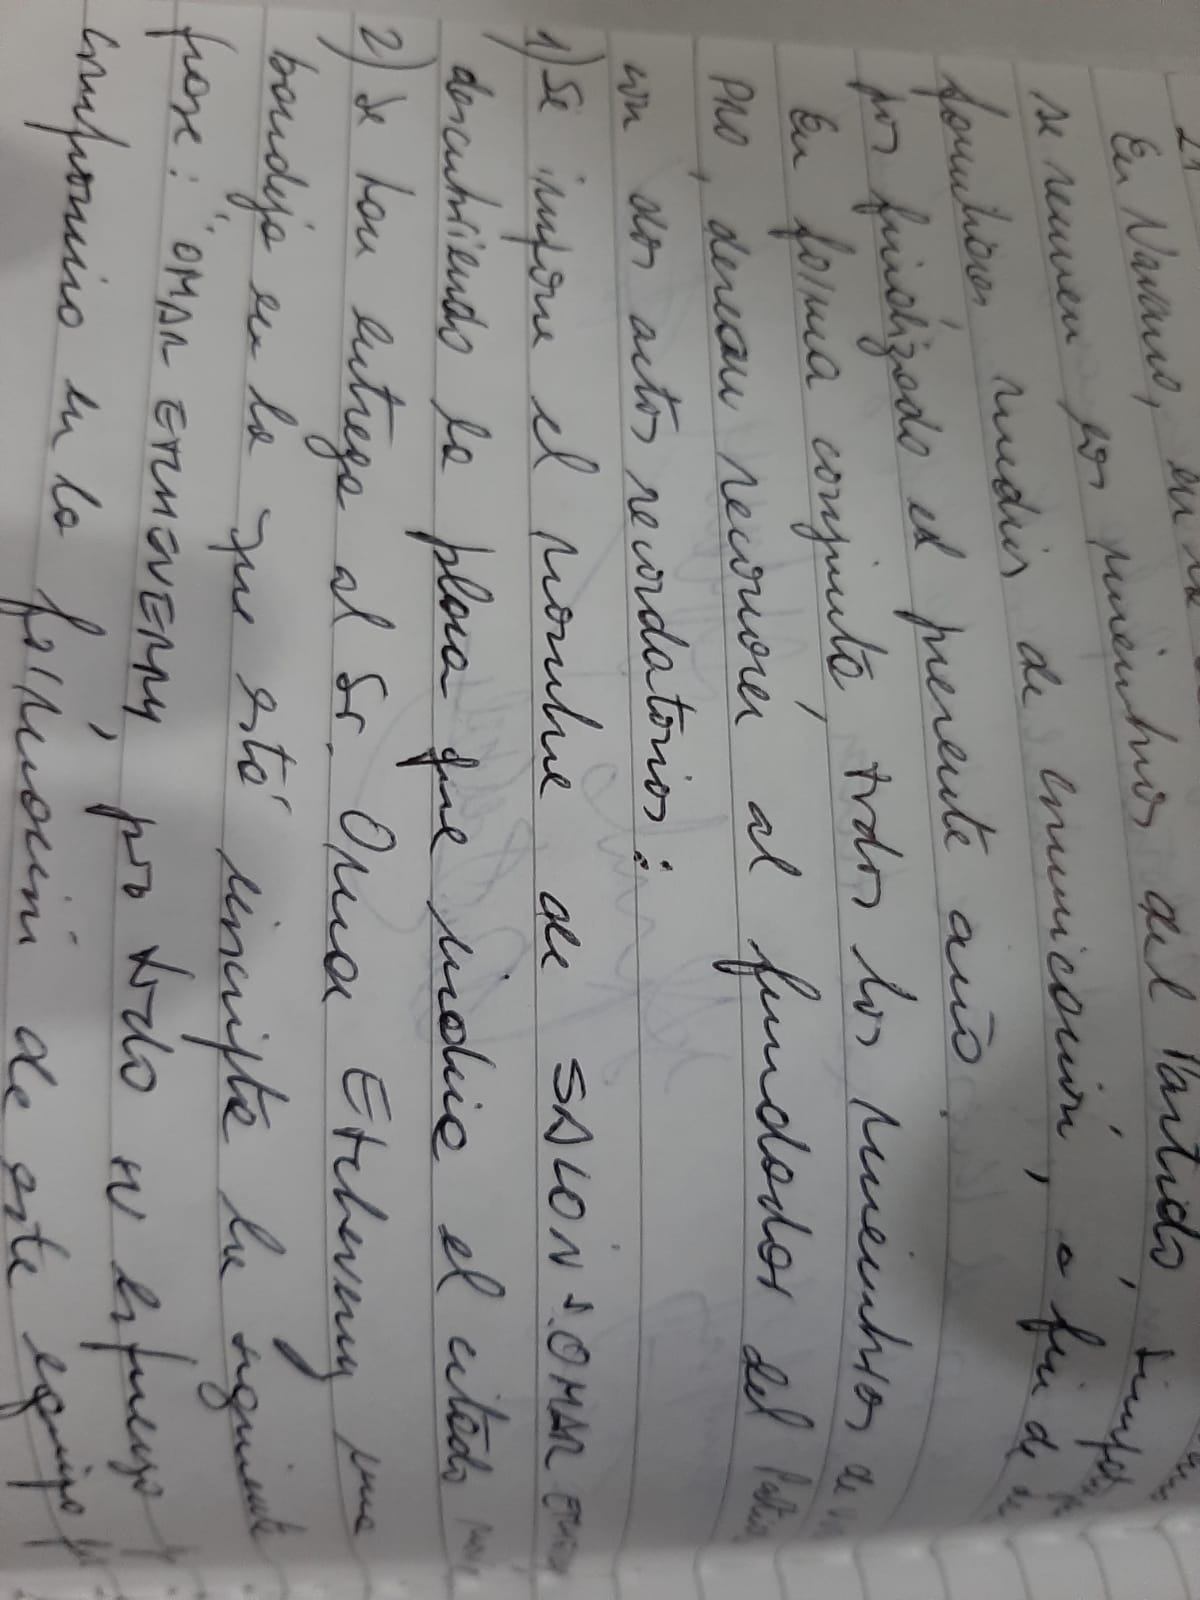 En Navarro, en la
se reunen los miembros del Partido,
familiares, medios de comunicación, a fin de
por finalizado el presente año.
En forma conjunta, todos los miembros de
PRO, desean reconocer al fundador del
con dos actos recordatorios:
1) Se impone el nombre de SALON: OMAR
descubriendo la placa que indica el citado
2) Se hace entrega al Sr. Omar Etcheverry una
bandeja en la que está inscripta la siguiente
frase: "OMAR ETCHEVERRY, por todo su esfuerzo
compromiso en la formación de este equipo